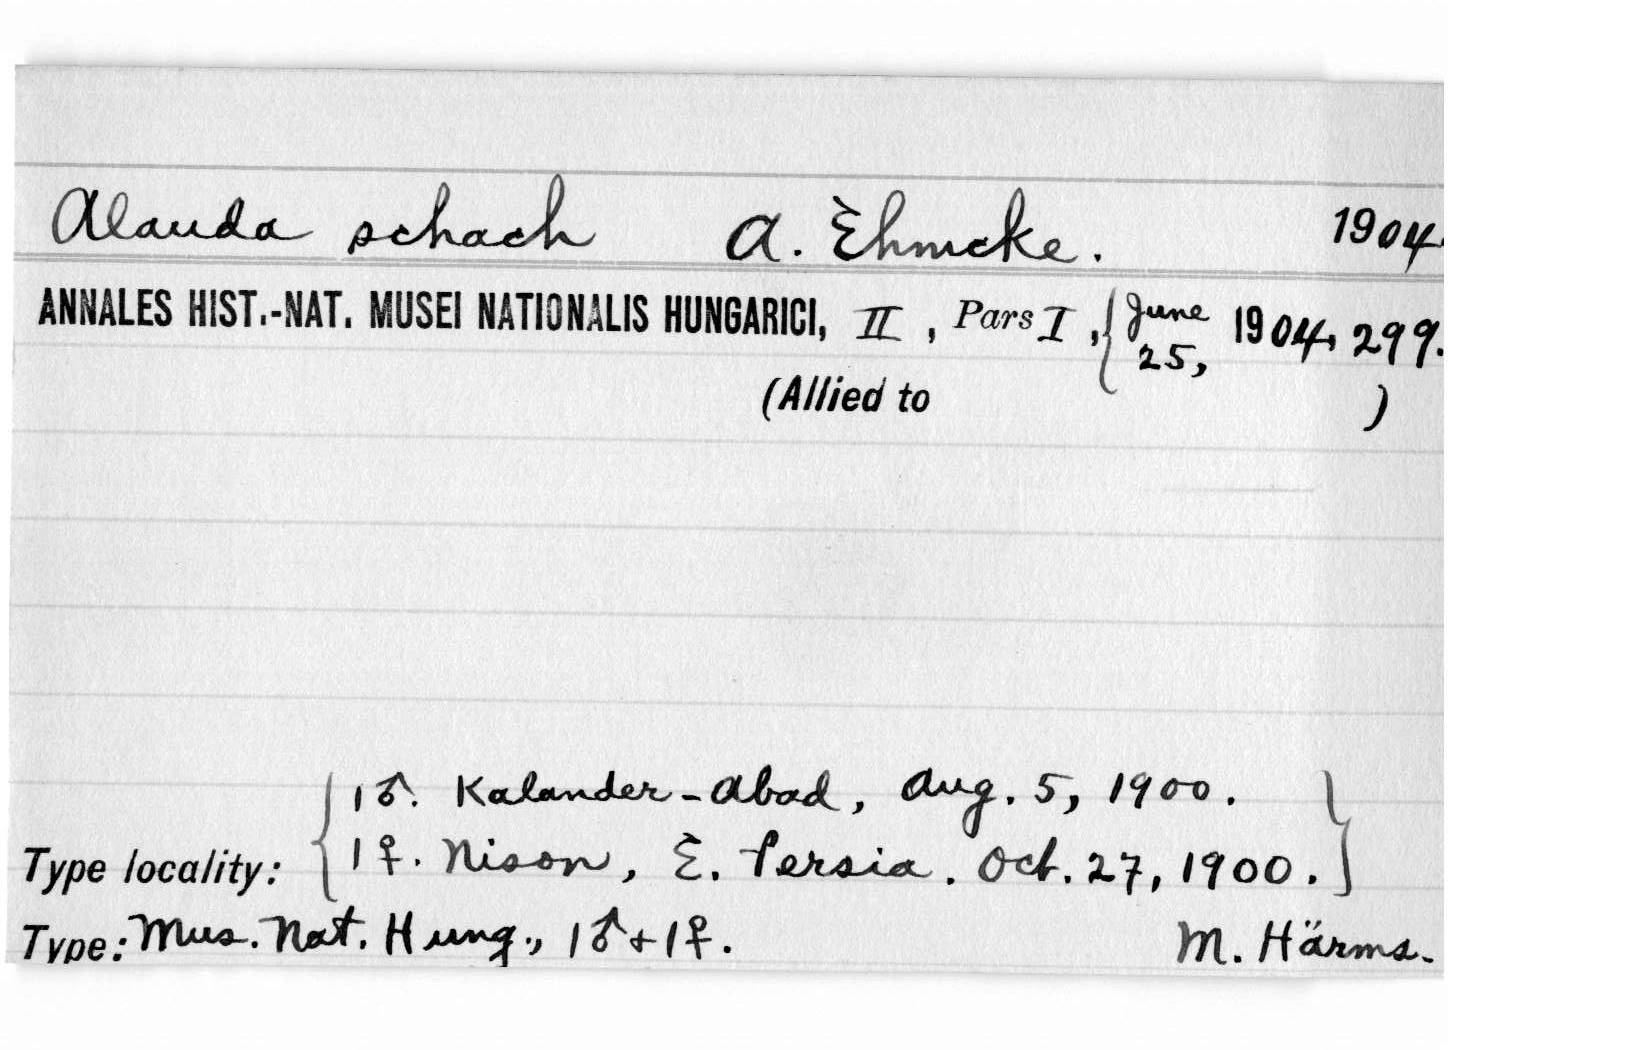 Alauda schach A. Ehmcke. 1904.
ANNALES HIST.-NAT. MUSEI NATIONALIS HUNGARICI, II, Pars I, { June 25, 1904, 299.
(Allied to )
Type locality: { 1♂. Kalander-Abad, Aug. 5, 1900.
1♀. Nison, E. Persia. Oct. 27, 1900. }
Type: Mus. Nat. Hung., 1♂ + 1♀. M. Härms.